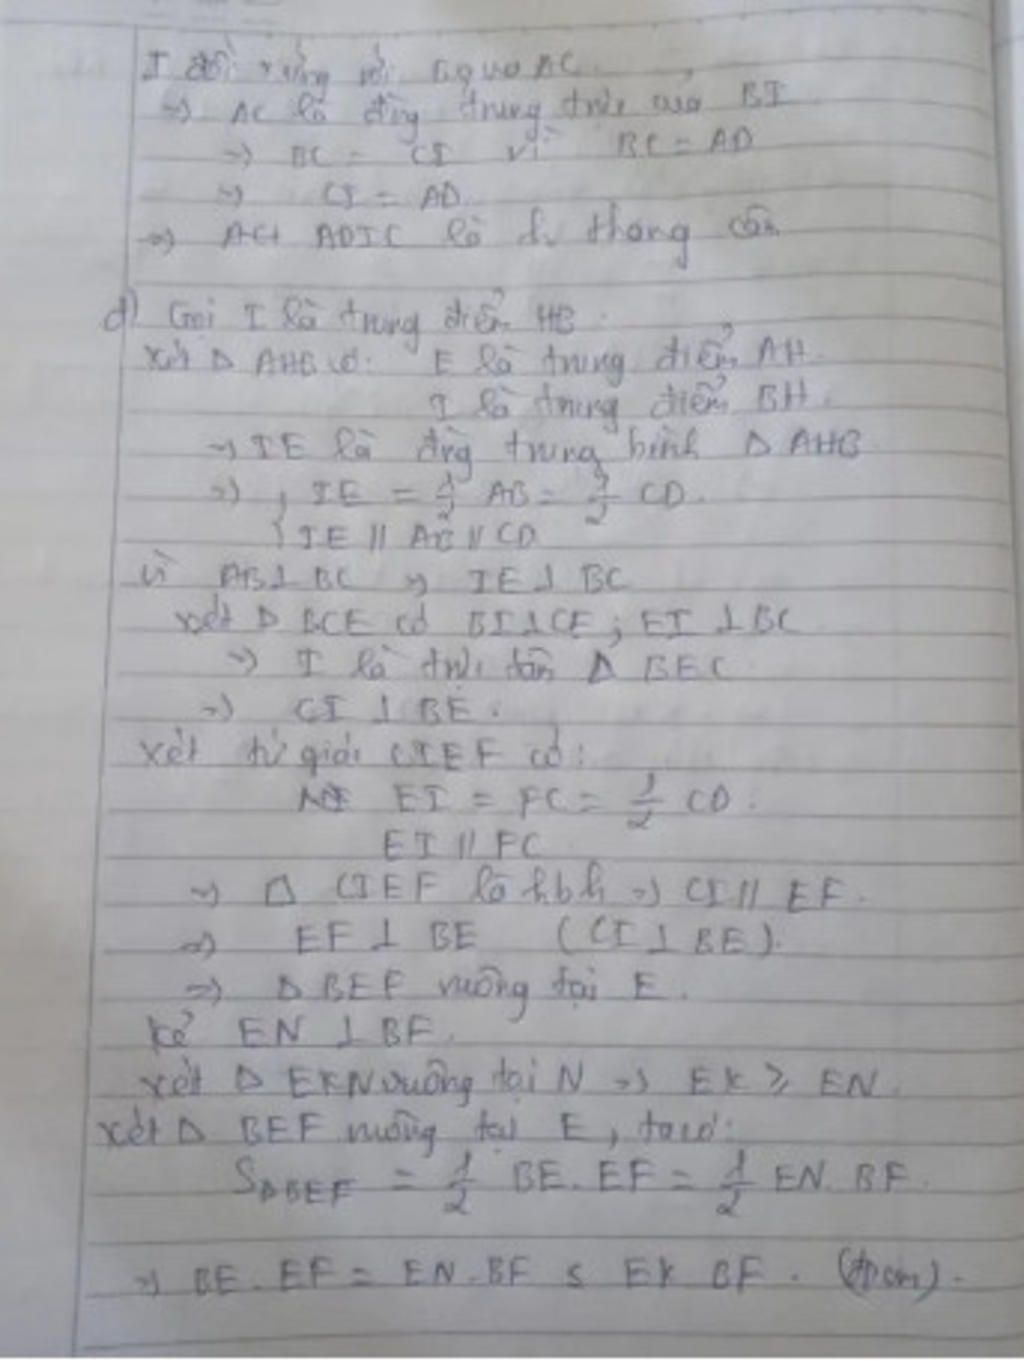 I đối xứng với B qua AC.
=> AC là đg trung trực của BI
=> BC = CI vì BC = AD
=> CI = AD
=> ACI ADIC là h. thang cân
d) Gọi I là trung điểm HB.
Xét Δ AHB có: E là trung điểm AH.
I là trung điểm BH.
=> IE là đg trung bình Δ AHB
=> { IE = 1/2 AB = 1/2 CD.
IE // AB // CD
Vì AB ⊥ BC => IE ⊥ BC
Xét Δ BCE có BI ⊥ CE ; EI ⊥ BC
=> I là trực tâm Δ BEC
=> CI ⊥ BE.
Xét tứ giác CIEF có:
EI = FC = 1/2 CD.
EI // FC
=> □ CIEF là hbh => CI // EF.
=> EF ⊥ BE (CI ⊥ BE).
=> Δ BEF vuông tại E.
Kẻ EN ⊥ BF.
Xét Δ EKN vuông tại N => EK ≥ EN.
Xét Δ BEF vuông tại E, ta có:
SΔBEF = 1/2 BE. EF = 1/2 EN. BF.
=> BE. EF = EN. BF ≤ EK BF. (đpcm).